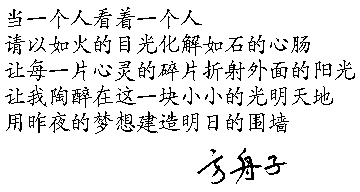 当一个人看着一个人
请以如火的目光化解如石的心肠
让每一片心灵的碎片折射外面的阳光
让我陶醉在这一块小小的光明天地
用昨夜的梦想建造明日的围墙
方舟子